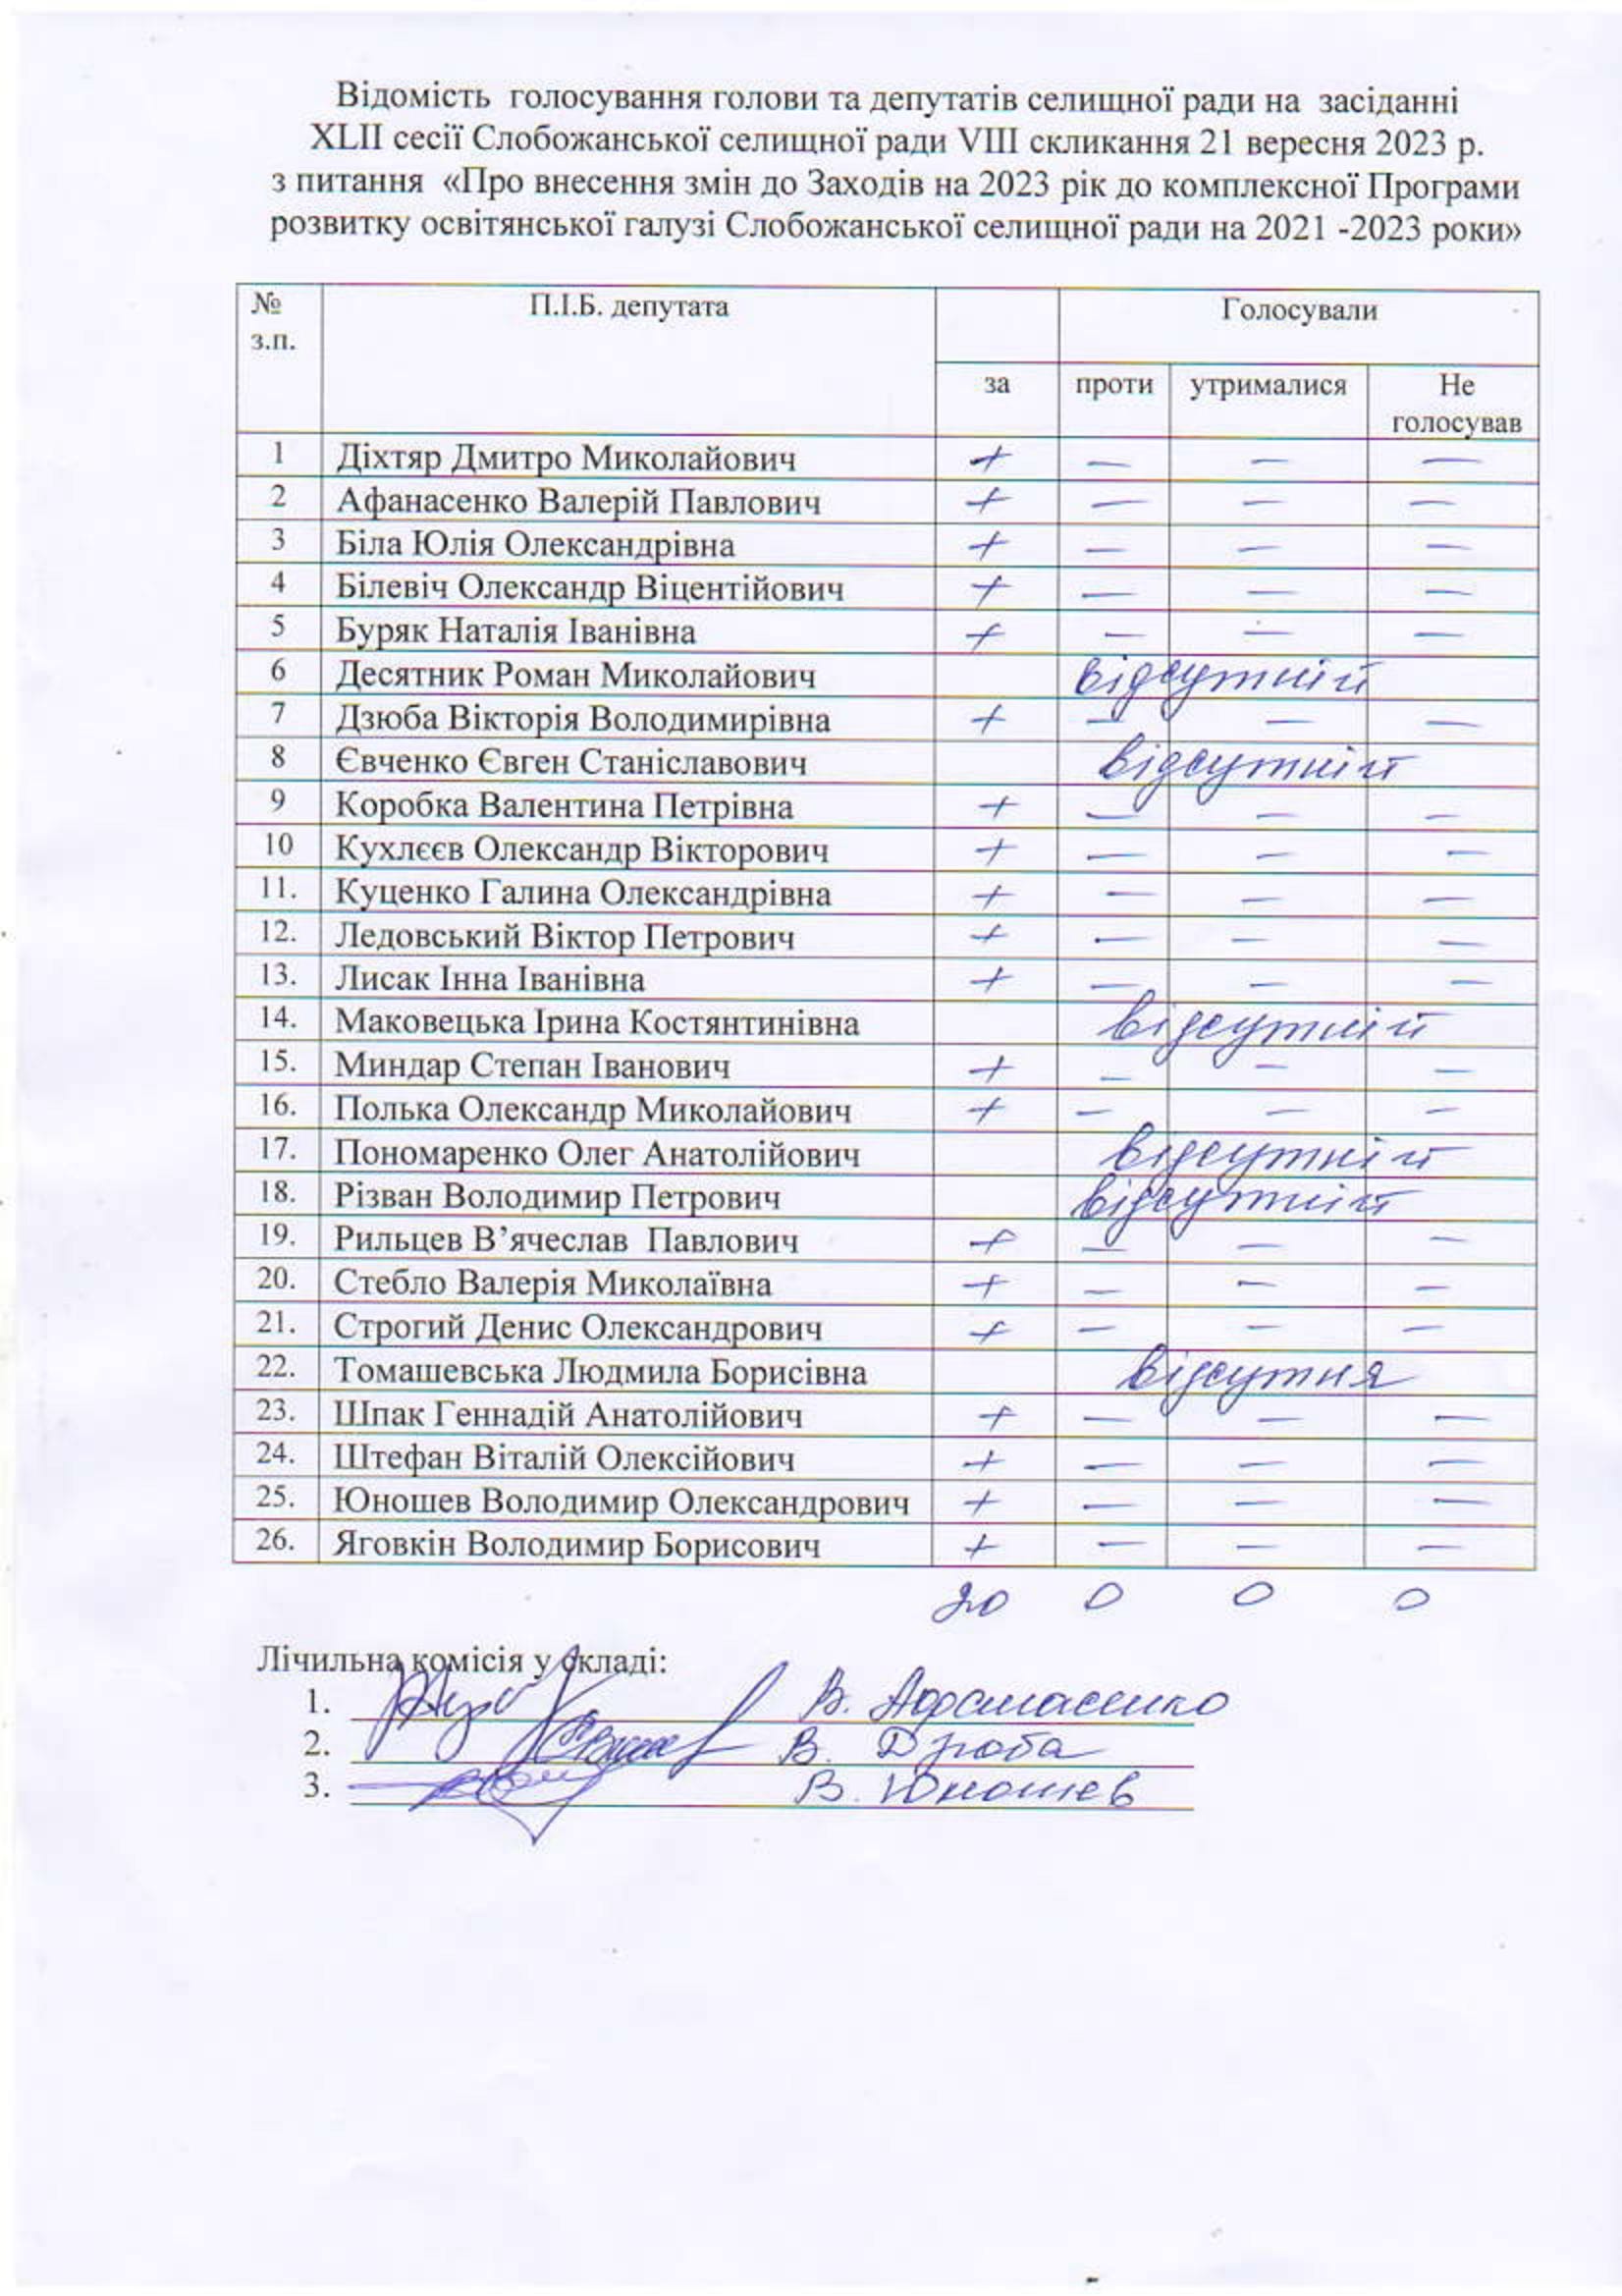 Відомість голосування голови та депутатів селищної ради на засіданні
XLII сесії Слобожанської селищної ради VIII скликання 21 вересня 2023 р.
з питання «Про внесення змін до Заходів на 2023 рік до комплексної Програми
розвитку освітянської галузі Слобожанської селищної ради на 2021 -2023 роки»
№ з.п. П.І.Б. депутата Голосували
за проти утрималися Не голосував
1 Діхтяр Дмитро Миколайович + — — —
2 Афанасенко Валерій Павлович + — — —
3 Біла Юлія Олександрівна + — — —
4 Білевіч Олександр Віцентійович + — — —
5 Буряк Наталія Іванівна + — — —
6 Десятник Роман Миколайович відсутній
7 Дзюба Вікторія Володимирівна + — — —
8 Євченко Євген Станіславович відсутній
9 Коробка Валентина Петрівна + — — —
10 Кухлєєв Олександр Вікторович + — — —
11. Куценко Галина Олександрівна + — — —
12. Ледовський Віктор Петрович + — — —
13. Лисак Інна Іванівна + — — —
14. Маковецька Ірина Костянтинівна відсутній
15. Миндар Степан Іванович + — — —
16. Полька Олександр Миколайович + — — —
17. Пономаренко Олег Анатолійович відсутній
18. Різван Володимир Петрович відсутній
19. Рильцев В’ячеслав Павлович + — — —
20. Стебло Валерія Миколаївна + — — —
21. Строгий Денис Олександрович + — — —
22. Томашевська Людмила Борисівна відсутня
23. Шпак Геннадій Анатолійович + — — —
24. Штефан Віталій Олексійович + — — —
25. Юношев Володимир Олександрович + — — —
26. Яговкін Володимир Борисович + — — —
20 0 0 0
Лічильна комісія у складі:
1. В. Афанасенко
2. В. Дзюба
3. В. Юношев